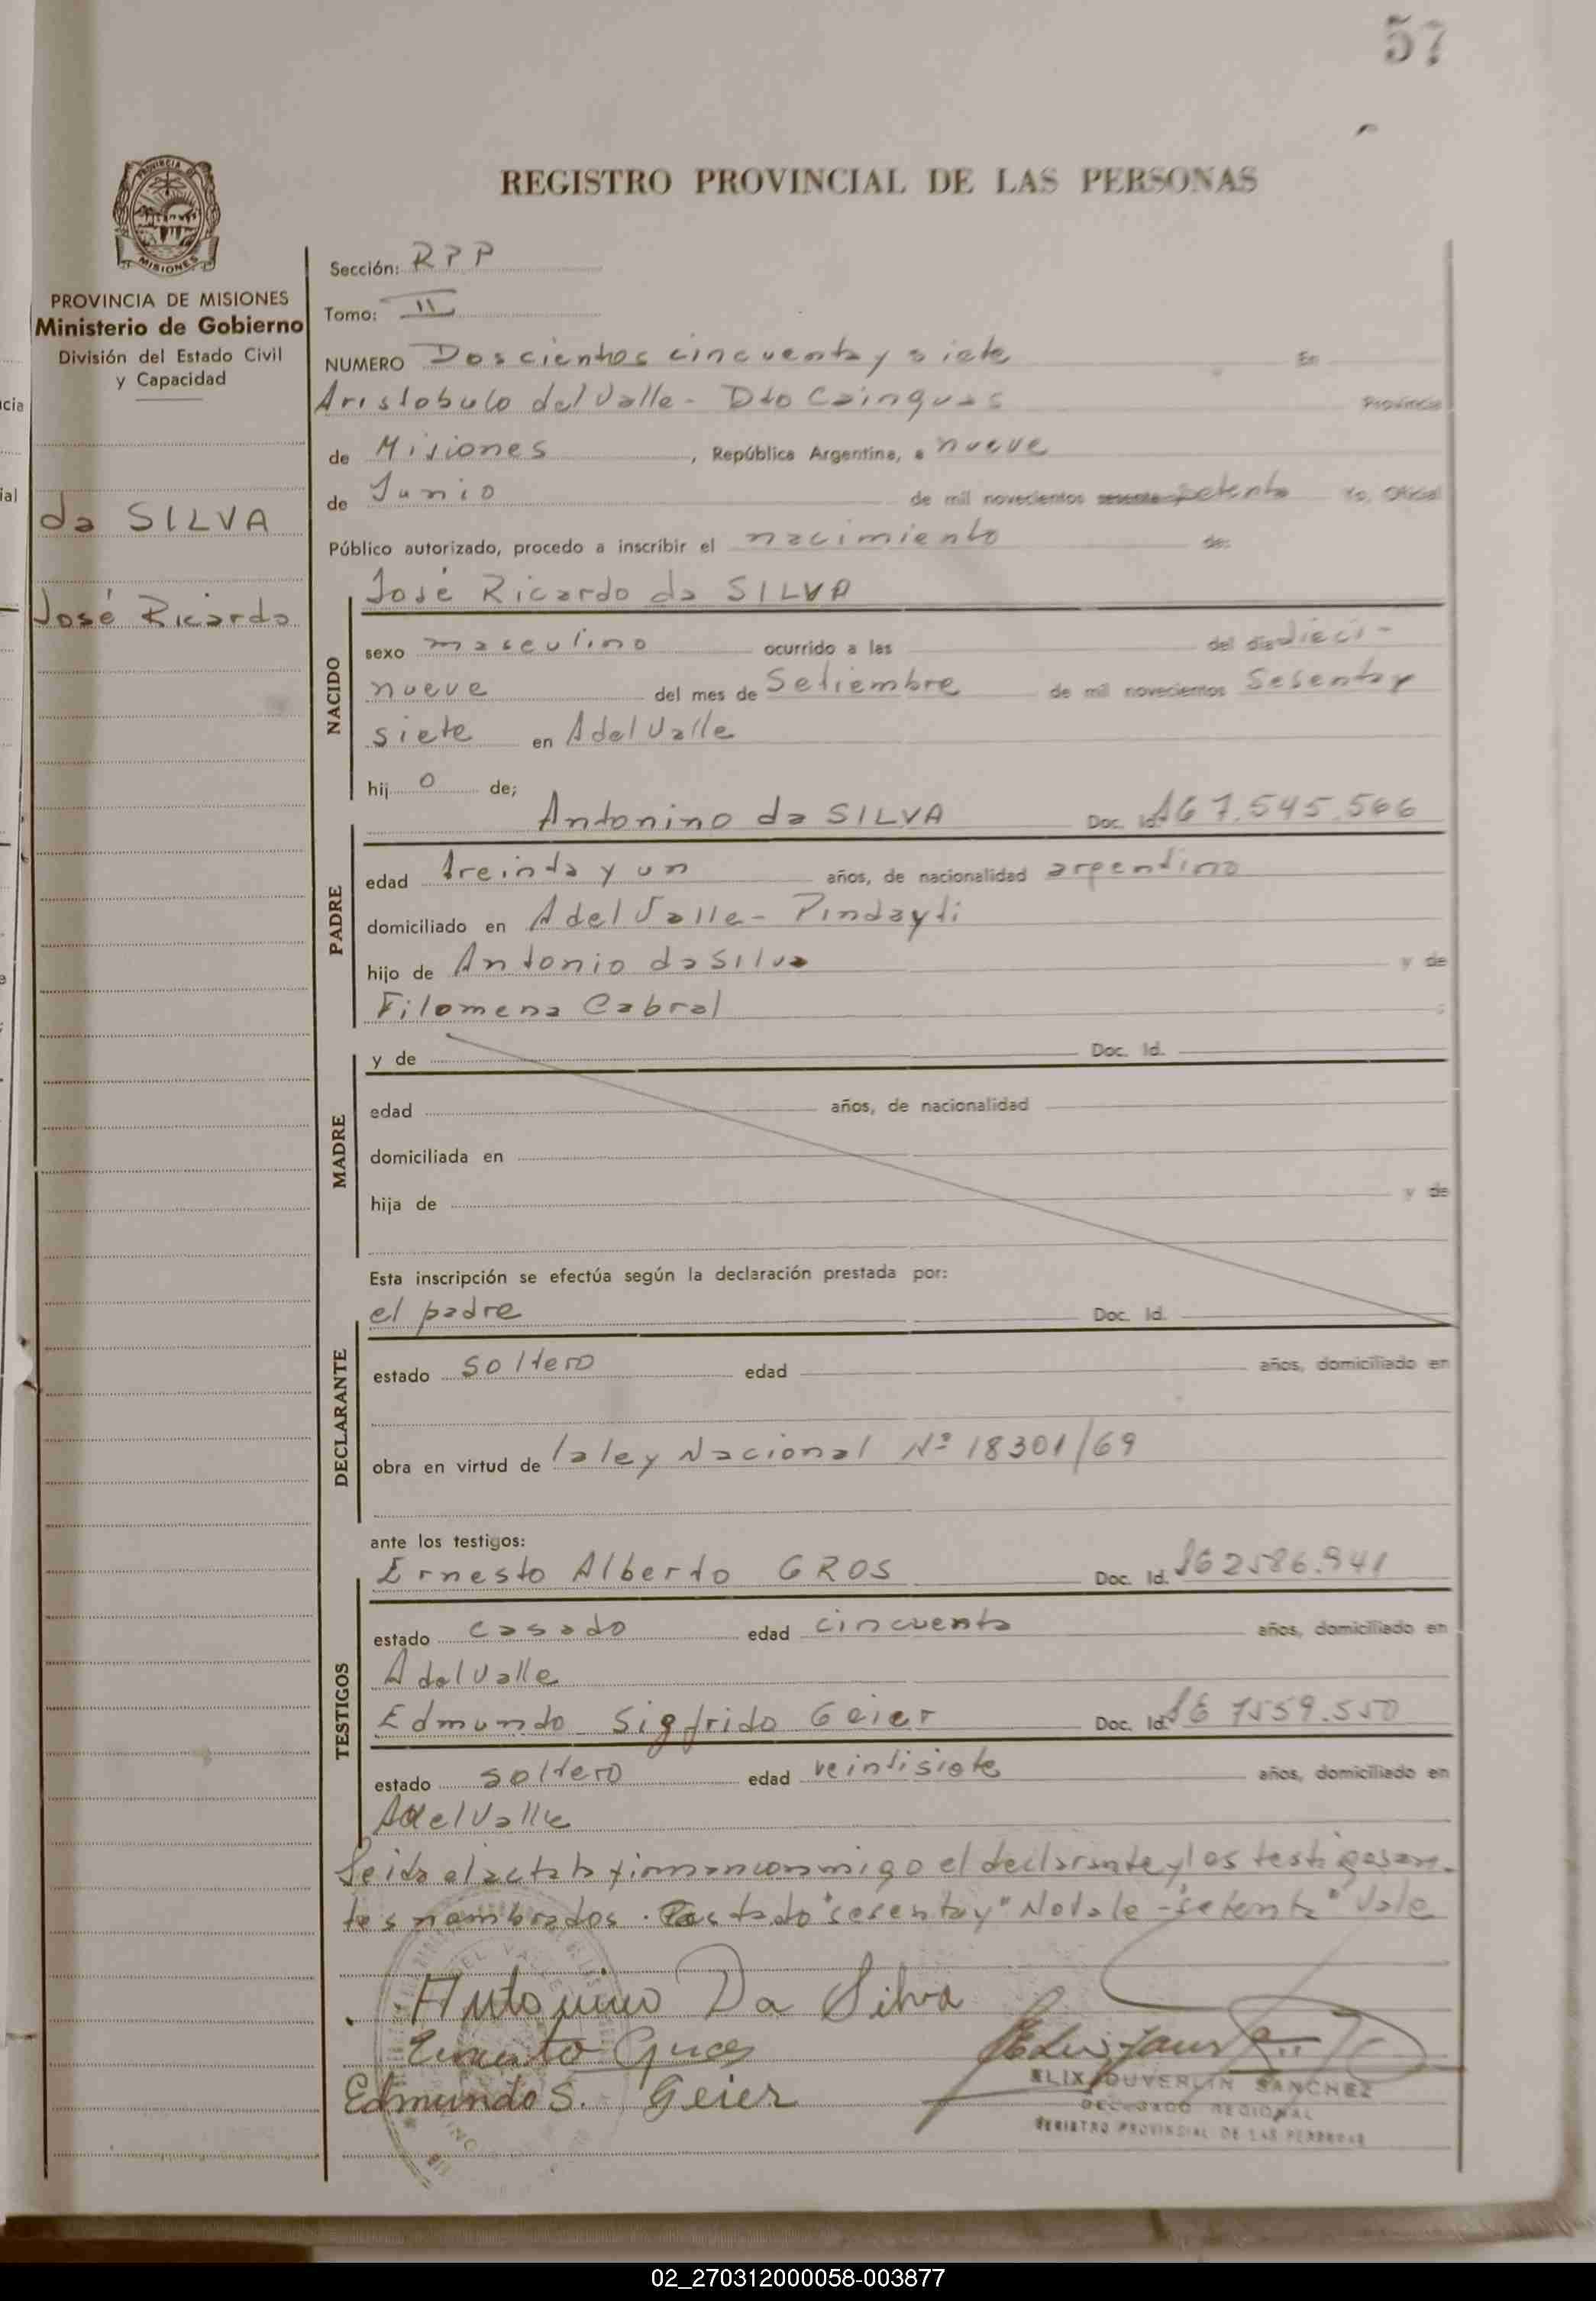 57
REGISTRO PROVINCIAL DE LAS PERSONAS
PROVINCIA DE
MISIONES
PROVINCIA DE MISIONES
Ministerio de Gobierno
División del Estado Civil
y Capacidad
da SILVA
José Ricardo
Sección: RPP
Tomo: II
NUMERO Doscientos cincuenta y siete En
Aristobulo del Valle - Dto Cainguas Provincia
de Misiones, República Argentina, a nueve
de Junio de mil novecientos setenta Yo, Oficial
Público autorizado, procedo a inscribir el nacimiento de:
José Ricardo da SILVA
NACIDO
sexo masculino ocurrido a las del día dieci-
nueve del mes de Setiembre de mil novecientos Sesentay
siete en AdelValle
hij o de;
PADRE
Antonino da SILVA Doc. Id. 7.545.566
edad treinta y un años, de nacionalidad argentino
domiciliado en AdelValle - Pindayti
hijo de Antonio daSilva y de
Filomena Cabral ;
MADRE
y de Doc. Id.
edad años, de nacionalidad
domiciliada en
hija de y de
Esta inscripción se efectúa según la declaración prestada por:
DECLARANTE
el padre Doc. Id.
estado soltero edad años, domiciliado en
obra en virtud de la ley Nacional Nº 18301/69
ante los testigos:
TESTIGOS
Ernesto Alberto GROS Doc. Id. 2586.941
estado casado edad cincuenta años, domiciliado en
AdelValle
Edmundo Sigfrido Geier Doc. Id. 7559.550
estado soltero edad veintisiete años, domiciliado en
AdelValle
Leida el acta la firman conmigo el declarante y los testigos an-
tes nombrados. Testado "sesenta y" No vale - "setenta" Vale
Antonino Da Silva
Ernesto Gros
Edmundo S. Geier
ELIX DUVERLIN SANCHEZ
DELEGADO REGIONAL
REGISTRO PROVINCIAL DE LAS PERSONAS
02_270312000058-003877